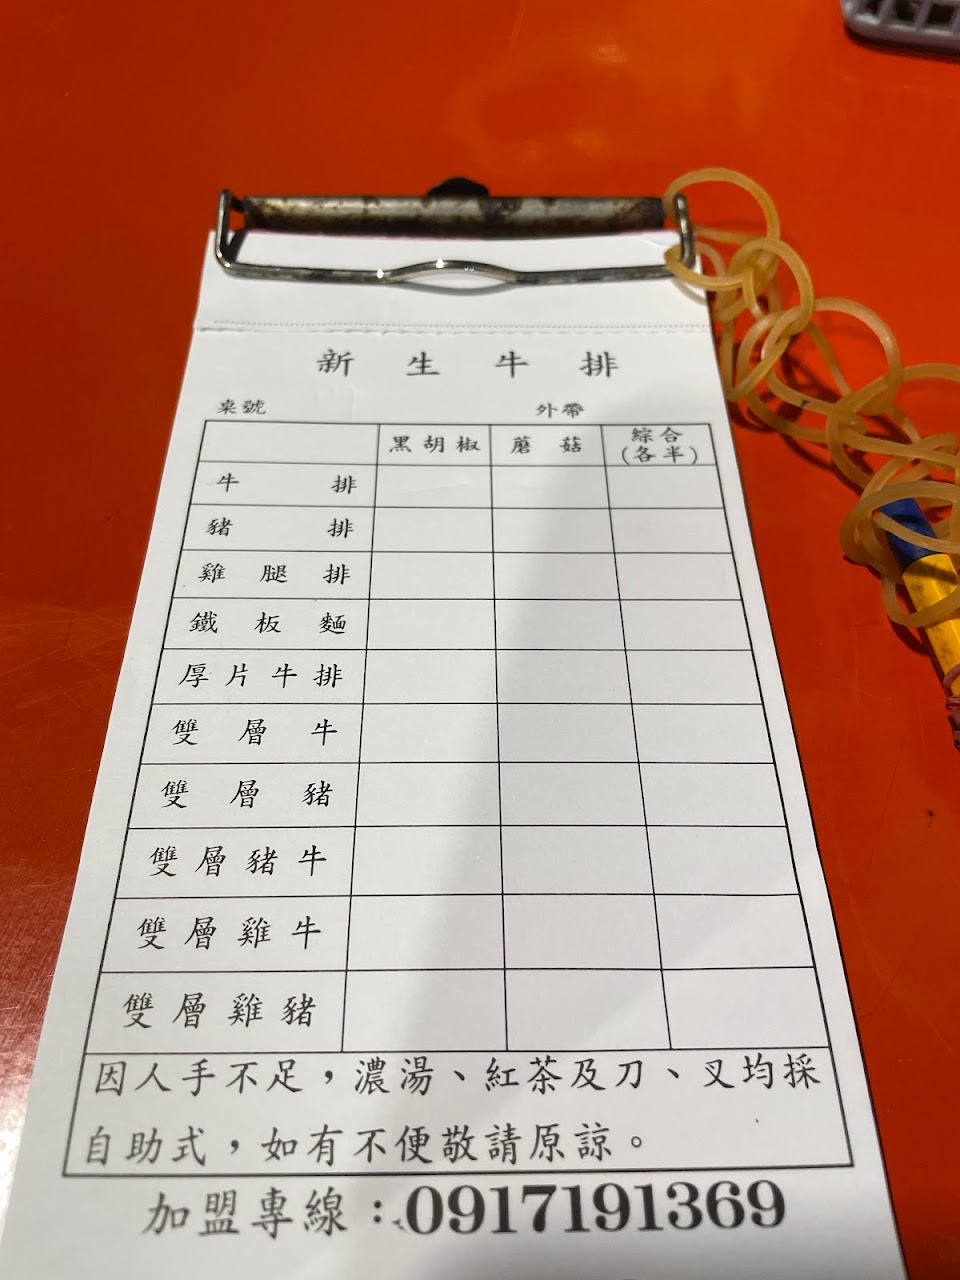 新生牛排
桌號 外帶
黑胡椒 蘑菇 綜合
(各半)
牛排
豬排
雞腿排
鐵板麵
厚片牛排
雙層牛
雙層豬
雙層豬牛
雙層雞牛
雙層雞豬
因人手不足，濃湯、紅茶及刀、叉均採
自助式，如有不便敬請原諒。
加盟專線：0917191369